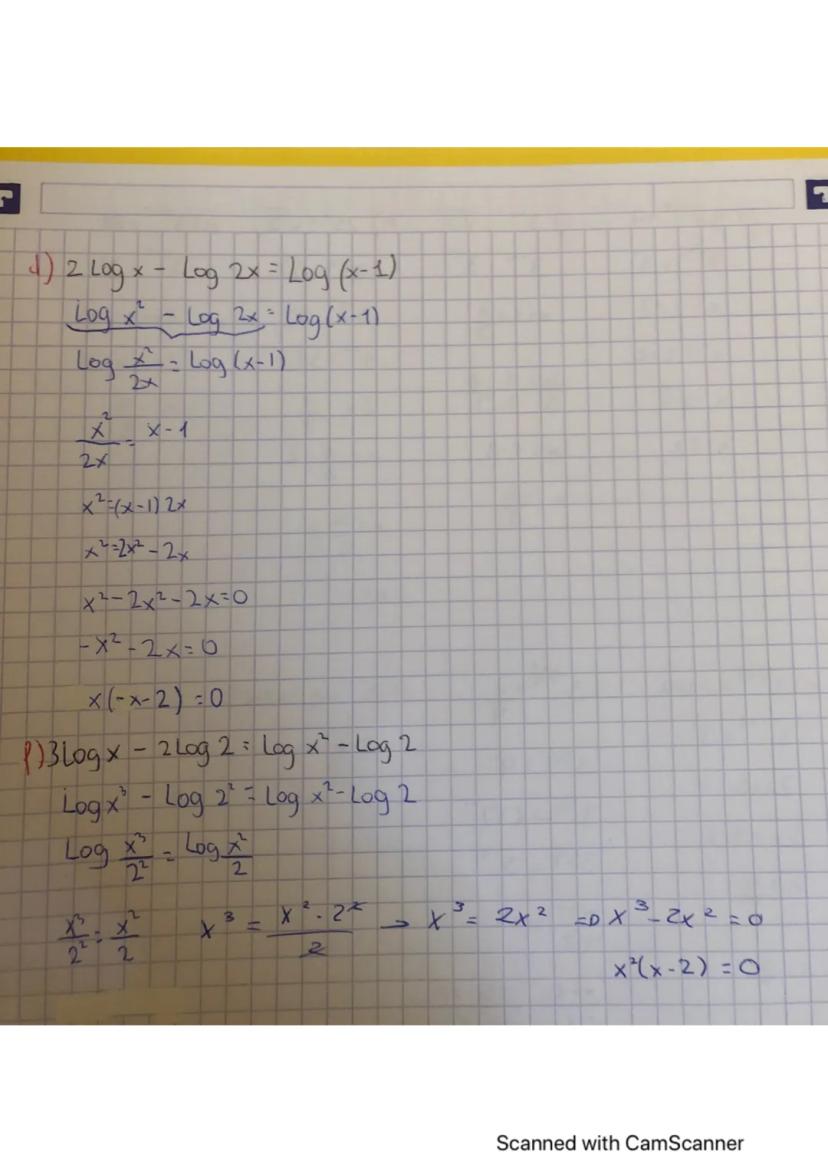 d) 2 Log x - Log 2x = Log (x-1)
Log x² - Log 2x = Log (x-1)
Log x²/2x = Log (x-1)
x²/2x = x-1
x² = (x-1) 2x
x² = 2x² - 2x
x² - 2x² - 2x = 0
-x² - 2x = 0
x(-x-2) = 0
f) 3 Log x - 2 Log 2 = Log x² - Log 2
Log x³ - Log 2² = Log x² - Log 2
Log x³/2² = Log x²/2
x³/2² = x²/2 x³ = x² · 2²/2 → x³ = 2x² ⇒ x³ - 2x² = 0
x²(x-2) = 0
Scanned with CamScanner